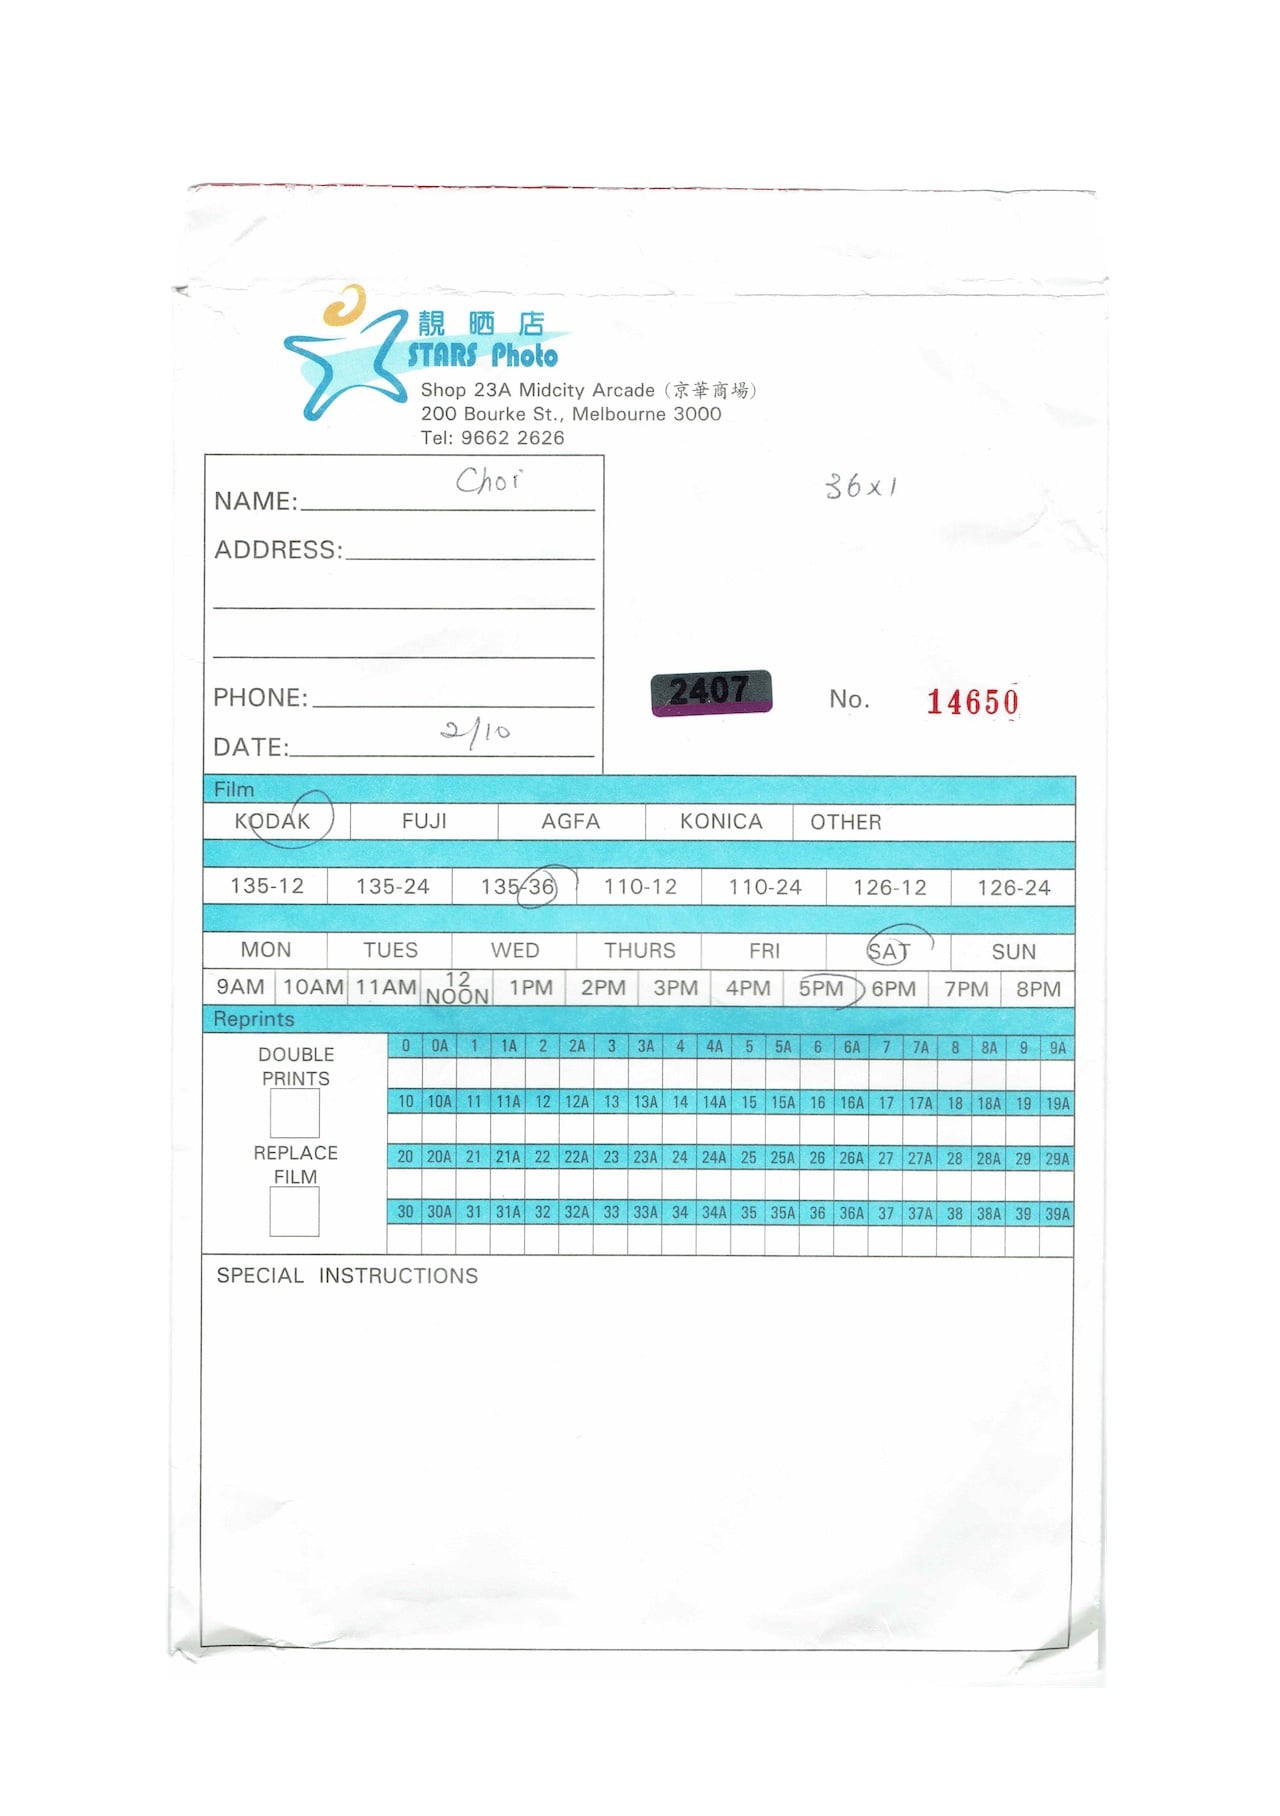 靚 晒 店
STARS Photo
Shop 23A Midcity Arcade (京華商場)
200 Bourke St., Melbourne 3000
Tel: 9662 2626
NAME: Choi
36x1
ADDRESS:
PHONE:
2407 No. 14650
DATE: 2/10
Film
KODAK FUJI AGFA KONICA OTHER
135-12 135-24 135-36 110-12 110-24 126-12 126-24
MON TUES WED THURS FRI SAT SUN
9AM 10AM 11AM 12 NOON 1PM 2PM 3PM 4PM 5PM 6PM 7PM 8PM
Reprints
DOUBLE
PRINTS
REPLACE
FILM
0 0A 1 1A 2 2A 3 3A 4 4A 5 5A 6 6A 7 7A 8 8A 9 9A
10 10A 11 11A 12 12A 13 13A 14 14A 15 15A 16 16A 17 17A 18 18A 19 19A
20 20A 21 21A 22 22A 23 23A 24 24A 25 25A 26 26A 27 27A 28 28A 29 29A
30 30A 31 31A 32 32A 33 33A 34 34A 35 35A 36 36A 37 37A 38 38A 39 39A
SPECIAL INSTRUCTIONS